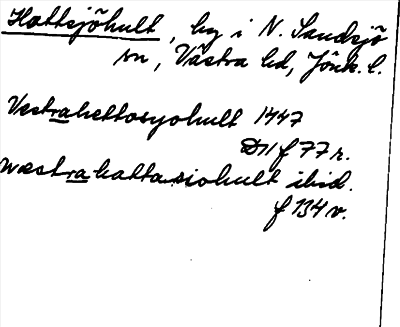 Hattsjöhult, by i N. Sandsjö
sn, Västra hd, Jönk. l.
Vestrahettosyohult 1447
D11 f 77 r.
wæstrahattasiohult ibid.
f 134 v.